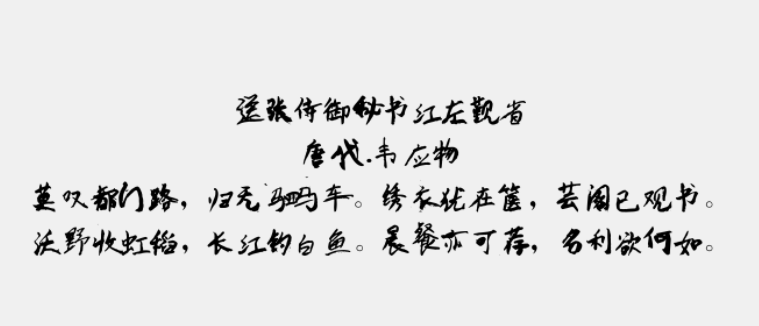 送张侍御秘书江左觐省
唐代.韦应物
莫叹都门路，归无驷马车。绣衣犹在箧，芸阁已观书。
沃野收红稻，长江钓白鱼。晨餐亦可荐，名利欲何如。